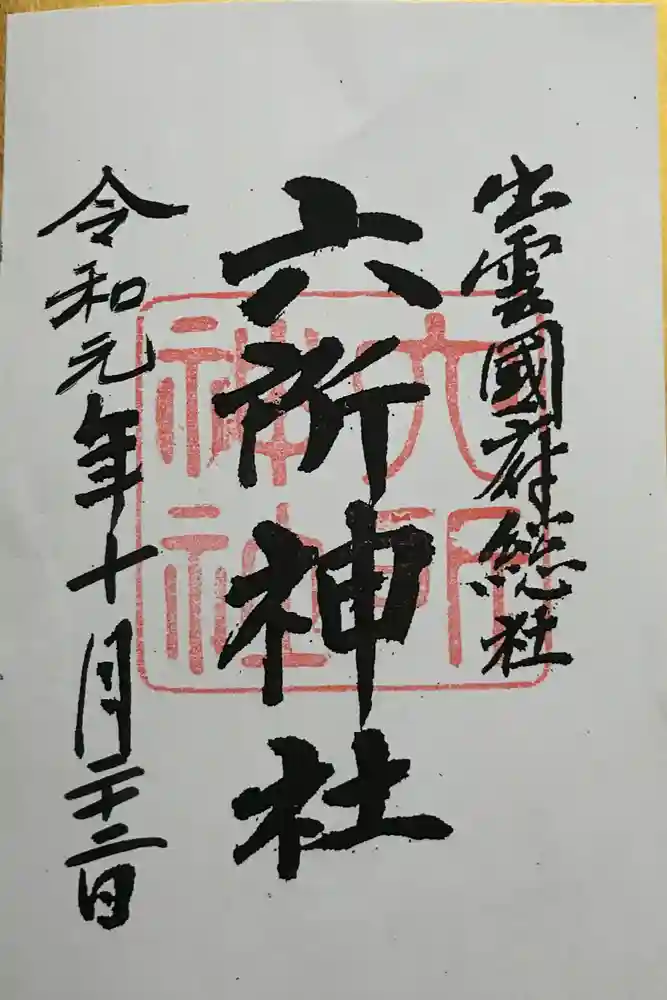 出雲國府総社
六所神社
令和元年十月二十二日
六所
神社